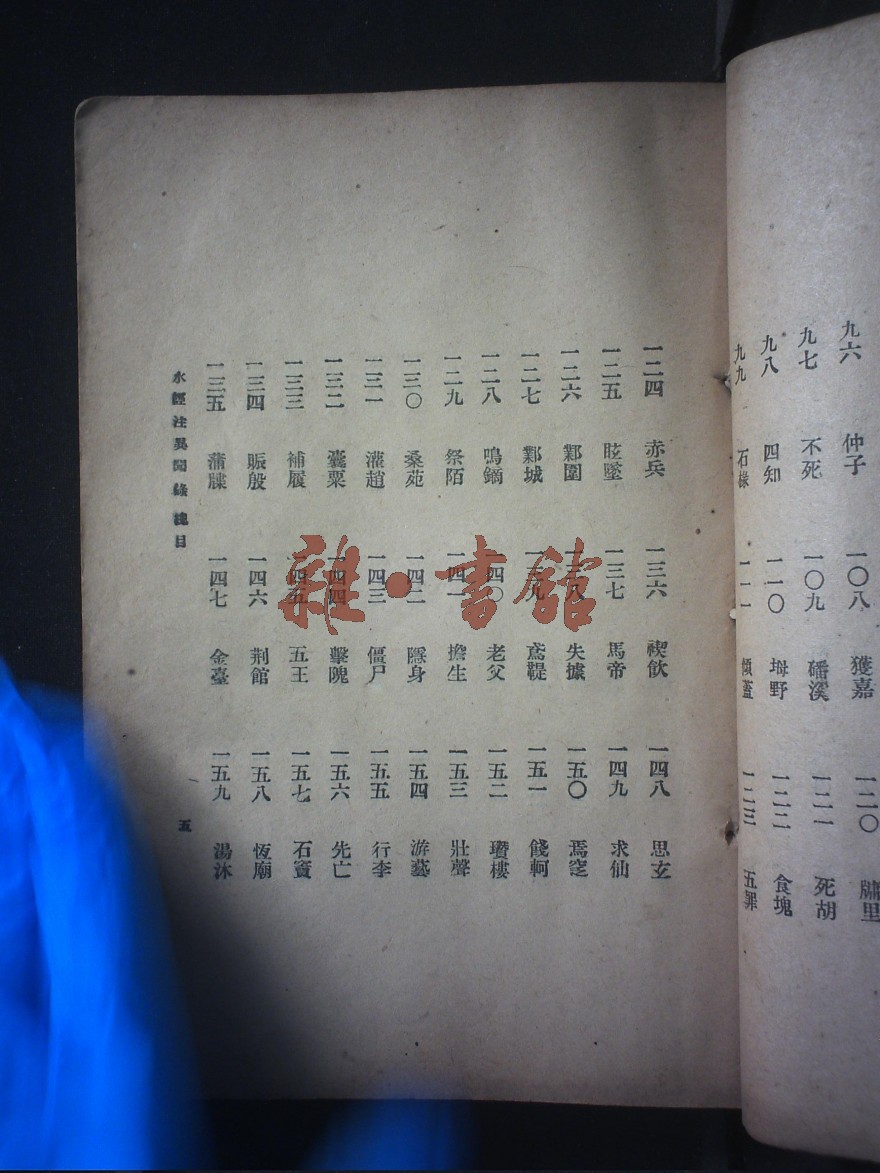 九六 仲子 一〇八 獲嘉 一二〇 牖里
九七 不死 一〇九 磻溪 一二一 死胡
九八 四知 一一〇 坶野 一二二 食塊
九九 石椽 一一一 傾蓋 一二三 五罪
一二四 赤兵 一三六 禊飲 一四八 思玄
一二五 眩墜 一三七 馬帝 一四九 求仙
一二六 鄴圍 一三八 失據 一五〇 焉窆
一二七 鄴城 一三九 鳶鞮 一五一 餞軻
一二八 鳴鏑 一四〇 老父 一五二 瓚樓
一二九 祭陌 一四一 擔生 一五三 壯聲
一三〇 桑苑 一四二 隱身 一五四 游藝
一三一 灌趙 一四三 僵尸 一五五 行李
一三二 囊粟 一四四 擊隗 一五六 先亡
一三三 補履 一四五 五王 一五七 石竇
一三四 賑殷 一四六 荆館 一五八 恆廟
一三五 蒲牒 一四七 金臺 一五九 湯沐
水經注異聞錄 總目 五
雜·書館